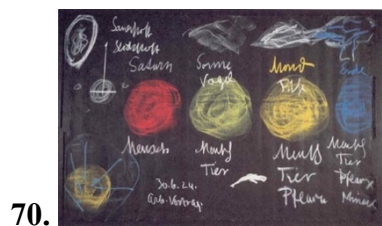 Sauerstoff
Stickstoff
Saturn
Sonne
Vogel
Mond
Erde
Mensch
Mensch
Tier
Mensch
Tier
Pflanze
Mensch
Tier
Pflanze
Mineral
30.6.24.
Arb. Vortrag.
70.